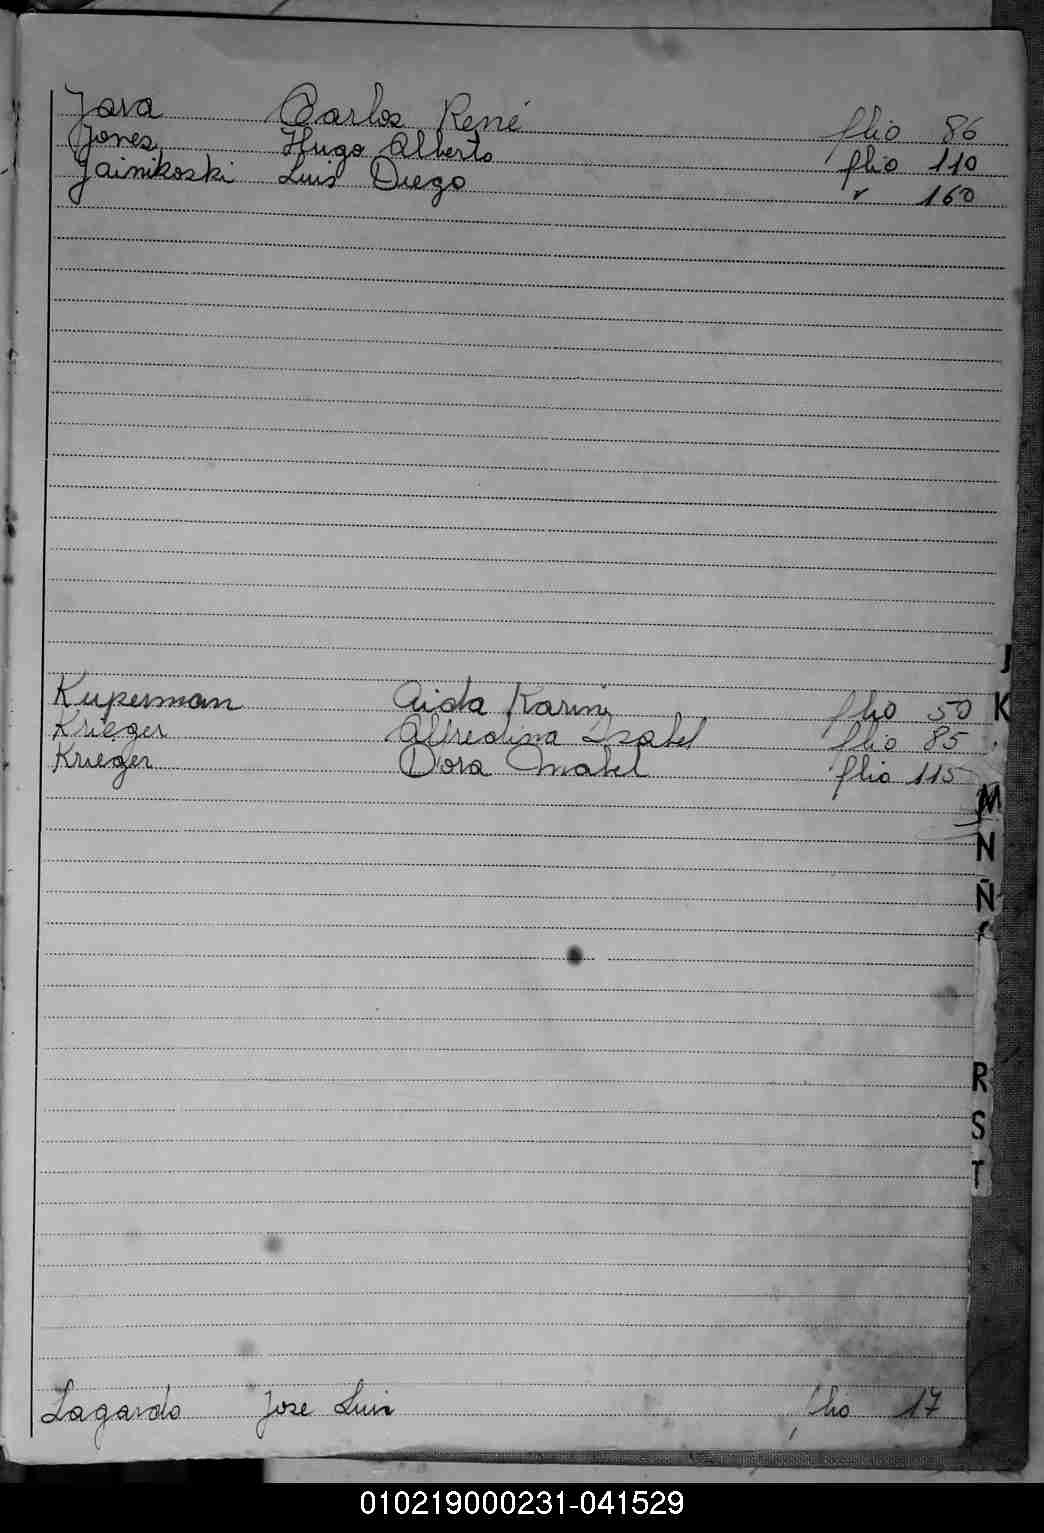 Java Carlos René flio 86
Jones Hugo Alberto flio 110
Jainikoski Luis Diego r 160
J
Kuperman Aida Karina flio 50 K
Krieger Alfredina Isabel flio 85
Krieger Dora Mabel flio 115
M
N
Ñ
R
S
T
Lagardo Jose Luis flio 17
010219000231-041529